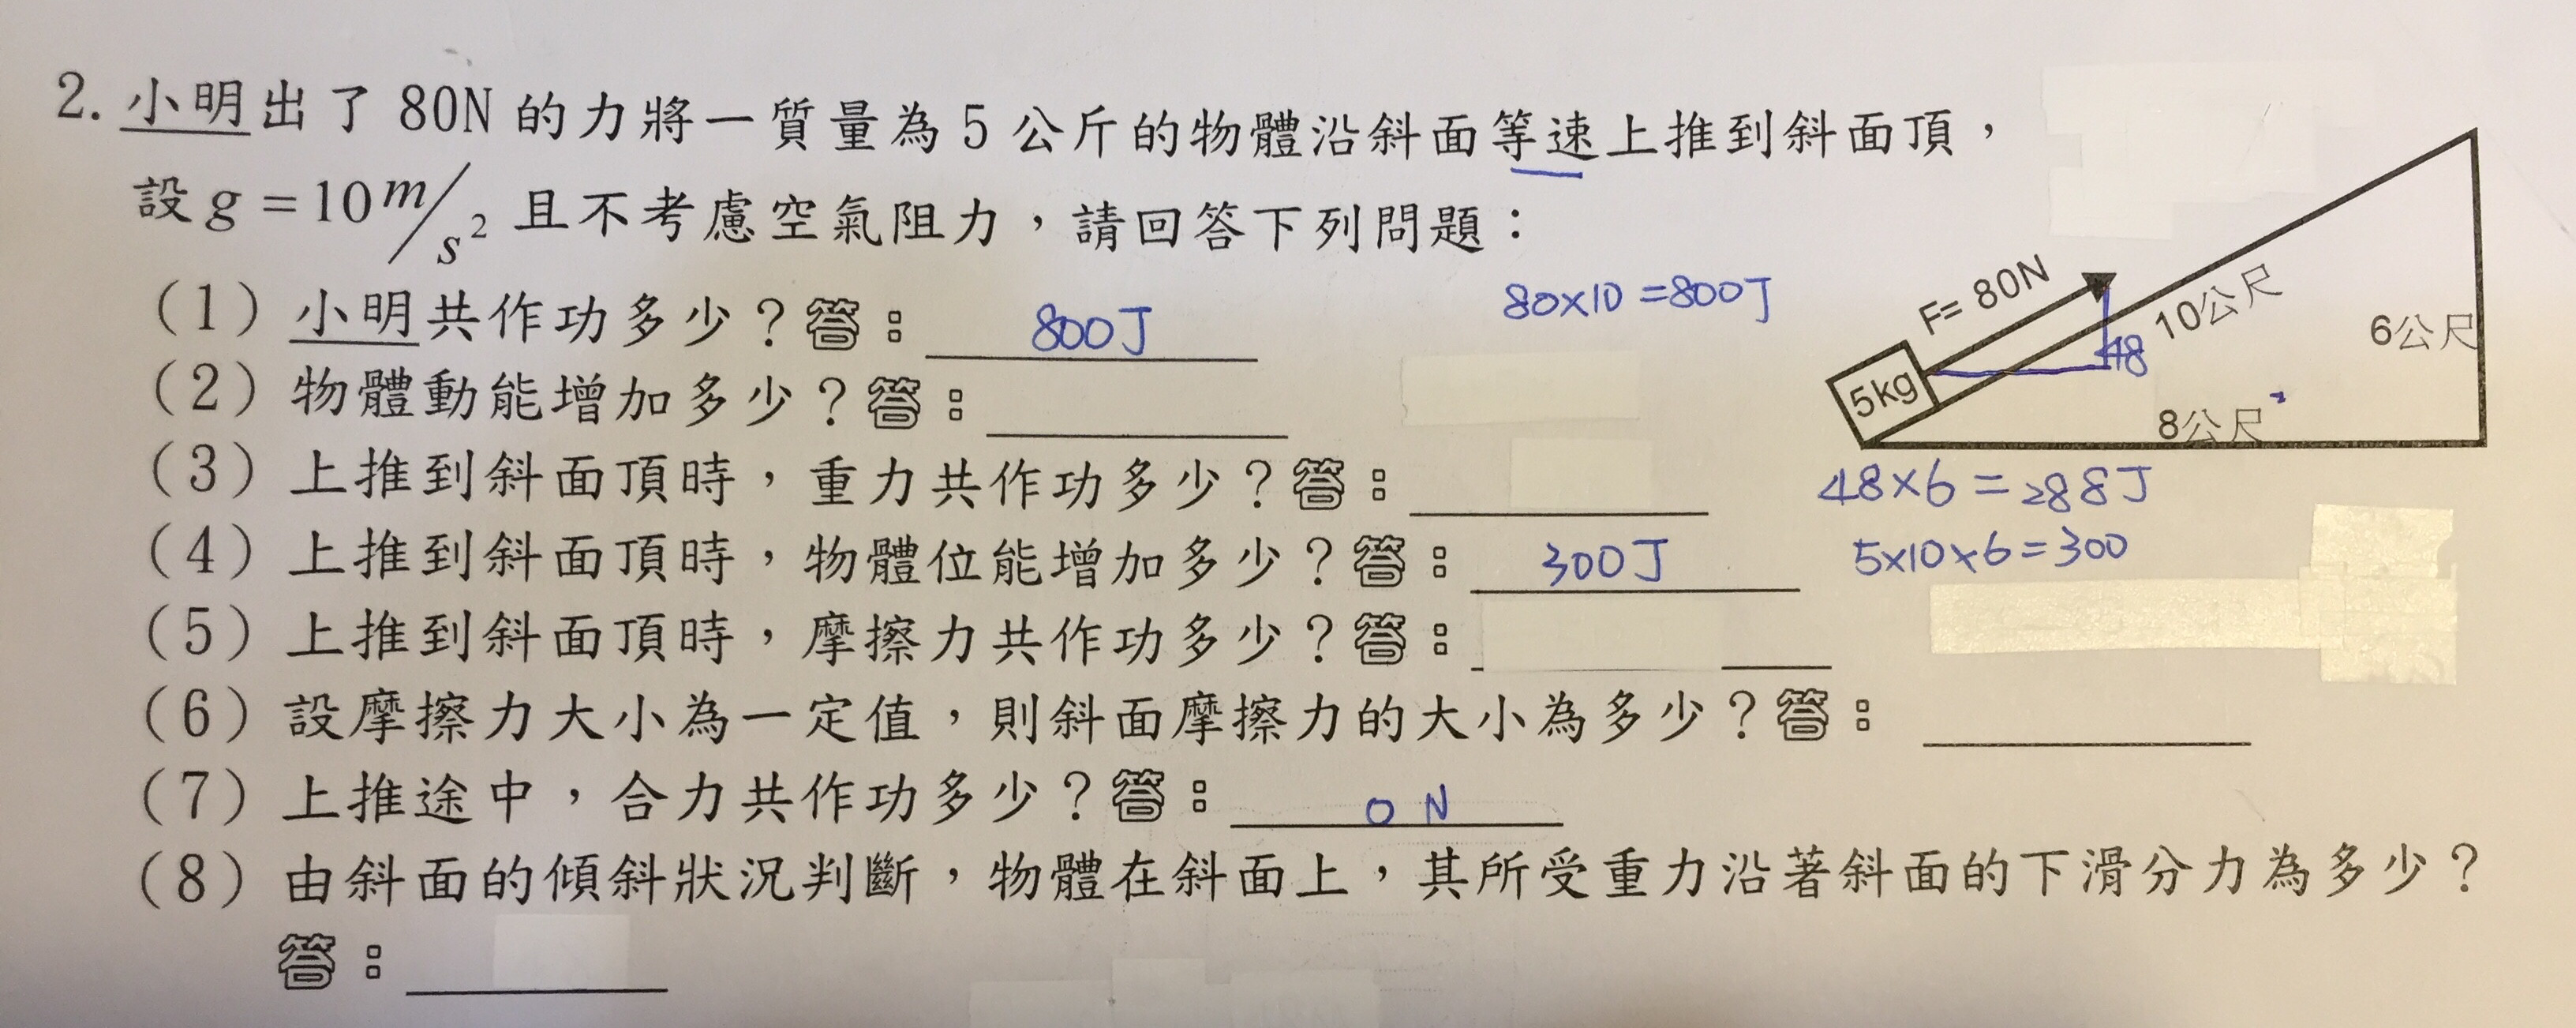 2. 小明出了 80N 的力將一質量為 5 公斤的物體沿斜面等速上推到斜面頂，
設 g = 10 m/s² 且不考慮空氣阻力，請回答下列問題：
(1) 小明共作功多少？答： 800J
80×10=800J
(2) 物體動能增加多少？答：
(3) 上推到斜面頂時，重力共作功多少？答：
(4) 上推到斜面頂時，物體位能增加多少？答： 300J
(5) 上推到斜面頂時，摩擦力共作功多少？答：
(6) 設摩擦力大小為一定值，則斜面摩擦力的大小為多少？答：
(7) 上推途中，合力共作功多少？答： 0 N
(8) 由斜面的傾斜狀況判斷，物體在斜面上，其所受重力沿著斜面的下滑分力為多少？
答：
F= 80N
10公尺
6公尺
48
5kg
8公尺
48×6=288J
5×10×6=300